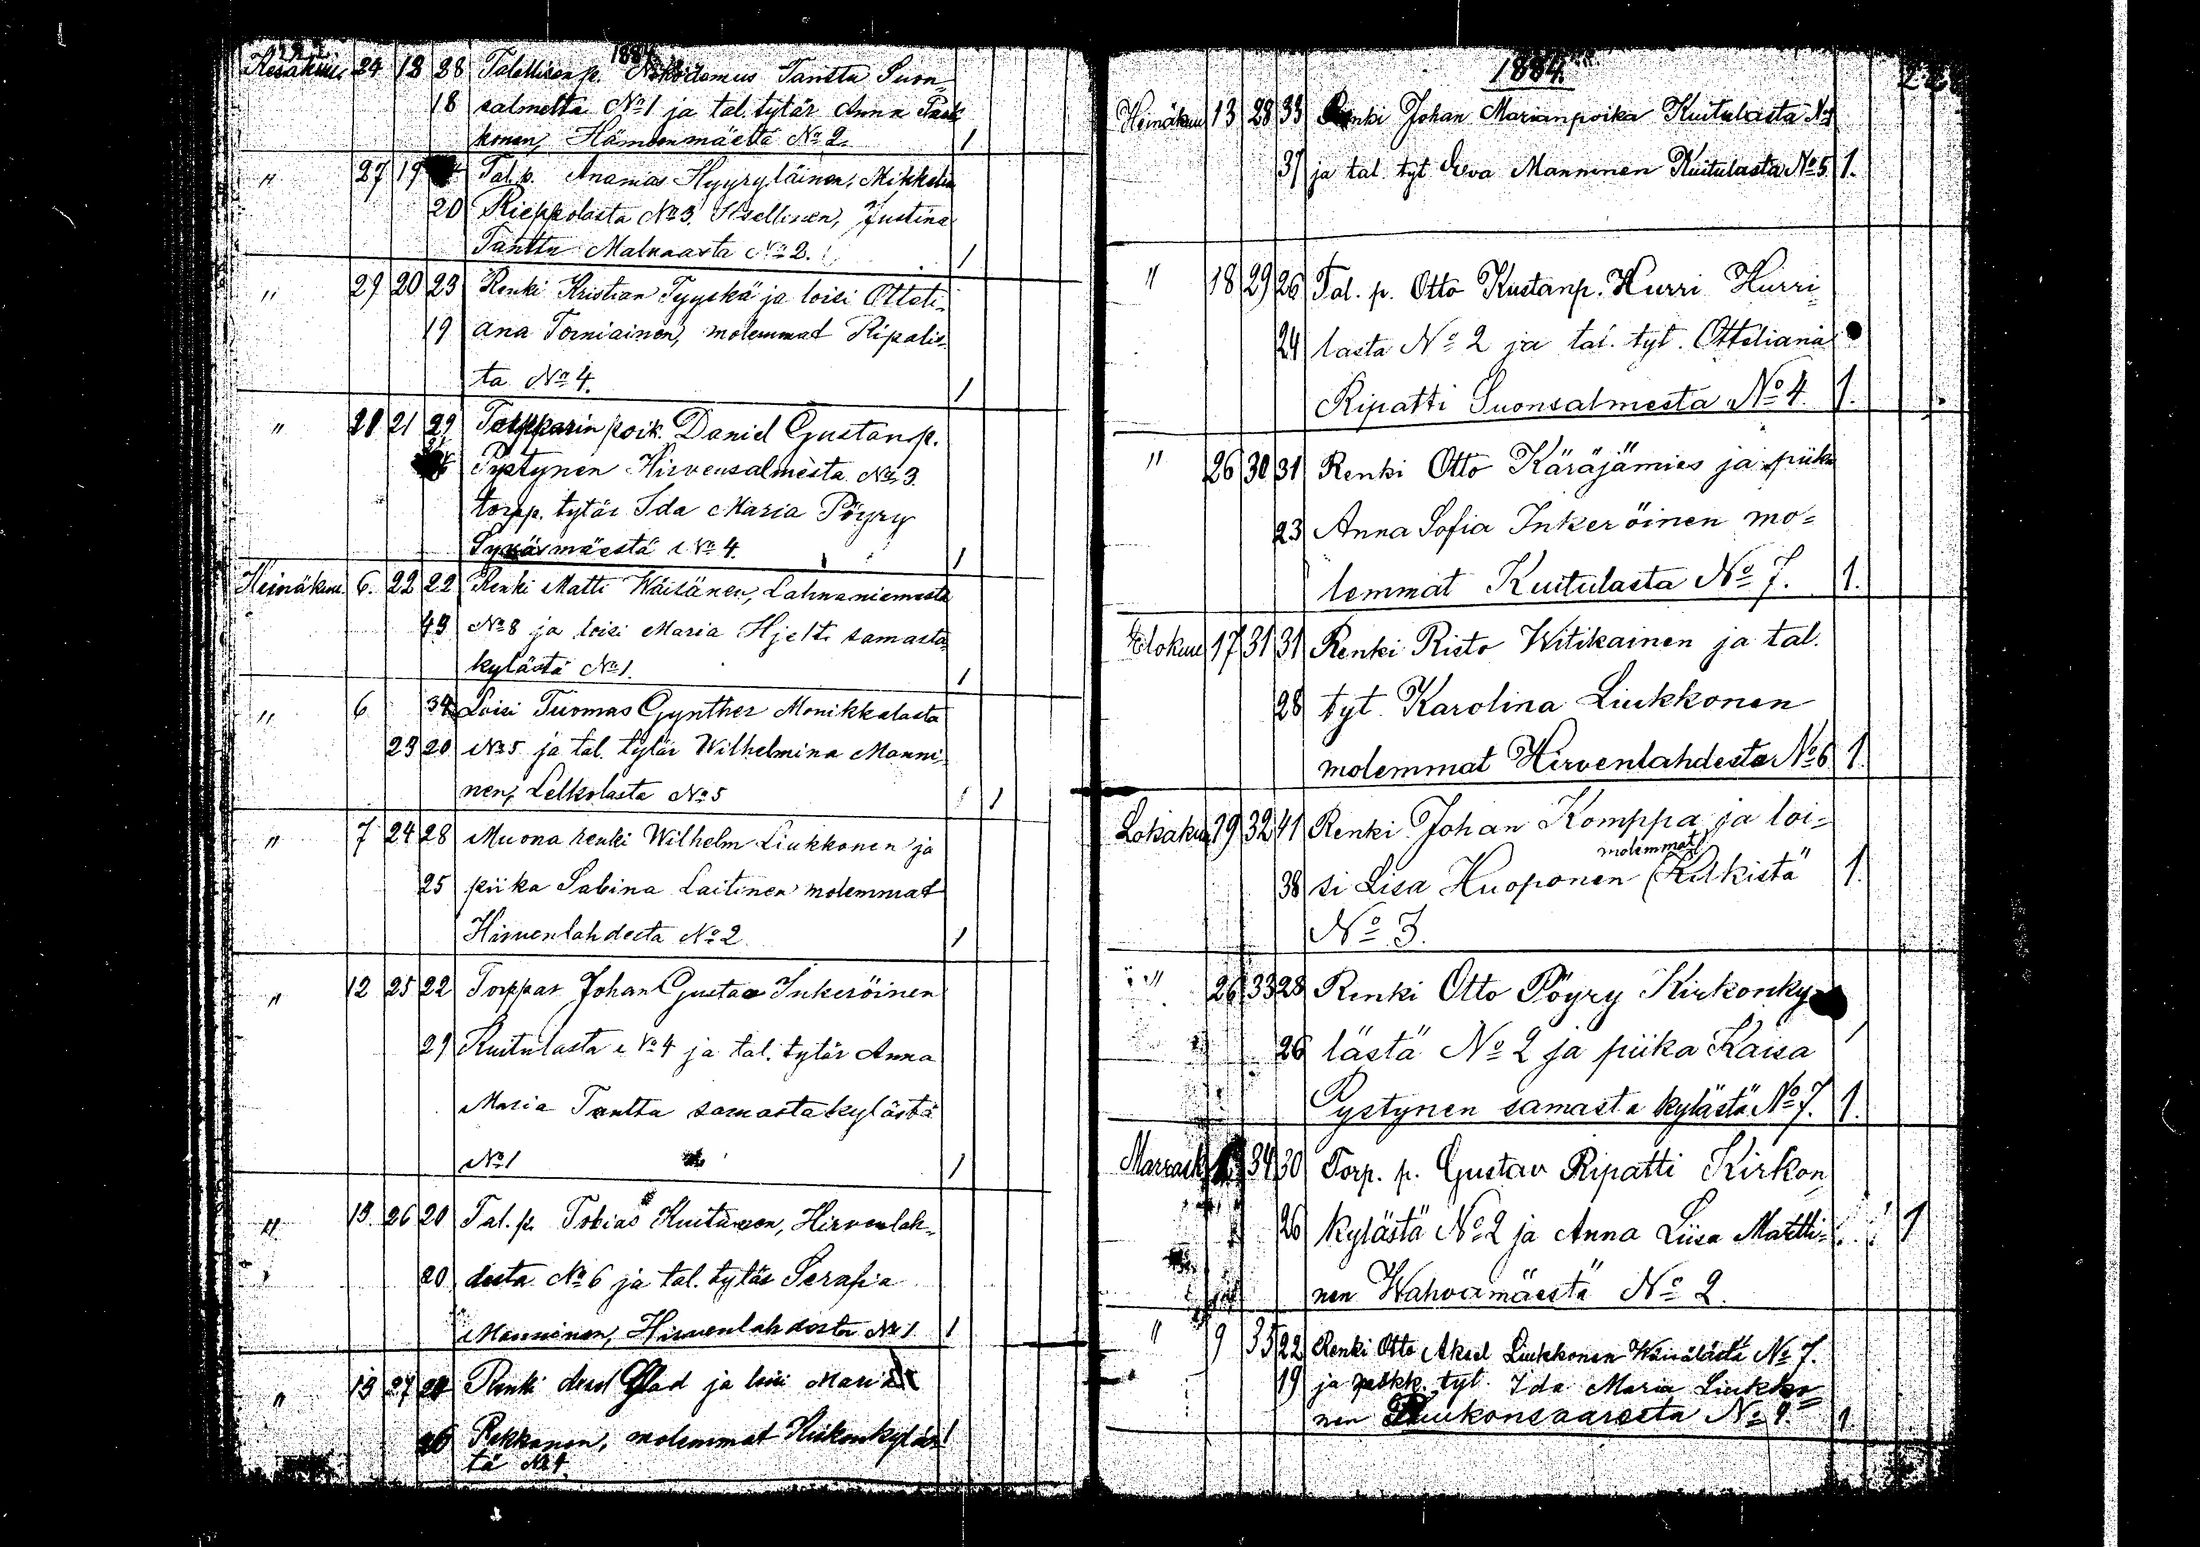 1884
Kesäkuu 24 18 28 Talollisen p. Nikodemus Tanttu Suon-
18 salmelta No 1 ja tal. tytär Anna Pask
konen, Hämeenmäeltä No 2. 1
" 27 19 Tal. p. Ananias Hyyryläinen, Mikkelin
20 Rieppolasta No 3. Itsellinen, Justina
Tanttu Malvaasta No 2. 1
" 29 20 23 Renki Kristian Tyyskä ja loisi Ottili-
19 ana Torniainen, molemmat Ripatis-
ta No 4. 1
" 29 21 29 Torpparin poik. Daniel Gustanp.
Pystynen Hirvensalmesta No 3.
torpp. tytär Ida Maria Pöyry
Syväsmäestä No 4. 1
Heinäkuu 6. 22 22 Renki Matti Wäisänen, Lahnaniemestä
43 No 8 ja loisi Maria Hjelt samasta
kylästä No 1. 1
" 6 34 Loisi Tuomas Gynther Monikkalasta
23 20 No 5 ja tal. tytär Wilhelmina Manni-
nen, Lelkolasta No 5 1
" 7 24 28 Muona renki Wilhelm Liukkonen ja
25 piika Sabina Laitinen molemmat
Hirvenlahdesta No 2 1
" 12 25 22 Torppar Johan Gustav Inkeröinen
29 Kuitulasta No 4 ja tal. tytär Anna
Maria Tanttu samasta kylästä
No 1 1
" 13. 26 20 Tal. p. Tobias Kuitunen, Hirvenlah-
20 desta No 6 ja tal. tytär Serafia
Manninen, Hirvenlahdesta No 1 1
" 13 27 Renki Glad ja loisi Maria
26 Pekkanen, molemmat Kirkonkyläs
tä No 4. 1
1884.
Heinäkuu 13 28 33 Renki Johan Marianpoika Kuitulasta No
37 ja tal. tyt Eva Manninen Kuitulasta No 5 1.
" 18 29 26 Tal. p. Otto Kustanp. Hurri Hurri-
24 lasta No 2 ja tal. tyt. Ottiliana
Ripatti Suonsalmesta No 4. 1.
" 26 30 31 Renki Otto Käräjämies ja piika
23 Anna Sofia Inkeröinen mo-
lemmat Kuitulasta No 7. 1.
Elokuu 17 31 31 Renki Risto Witikainen ja tal.
28 tyt. Karolina Liukkonen
molemmat Hirvenlahdesta No 6 1.
Lokakuu 19 32 41 Renki Johan Komppa ja loi-
molemmat
38 si Lisa Huoponen (Kilkistä 1.
No 3.
" 26 33 28 Renki Otto Pöyry Kirkonky
26 lästä No 2 ja piika Kaisa
Pystynen samasta kylästä No 7. 1.
Marrask 34 30 Torp. p. Gustav Ripatti Kirkon
26 kylästä No 2 ja Anna Liisa Martti- 1
nen Wahvamäestä No 2.
" 9 35 22 Renki Otto Aksel Liukkonen Wäisälästä No 7.
19 ja tyt. Ida Maria Liukko
nen Puukonsaaresta No 1